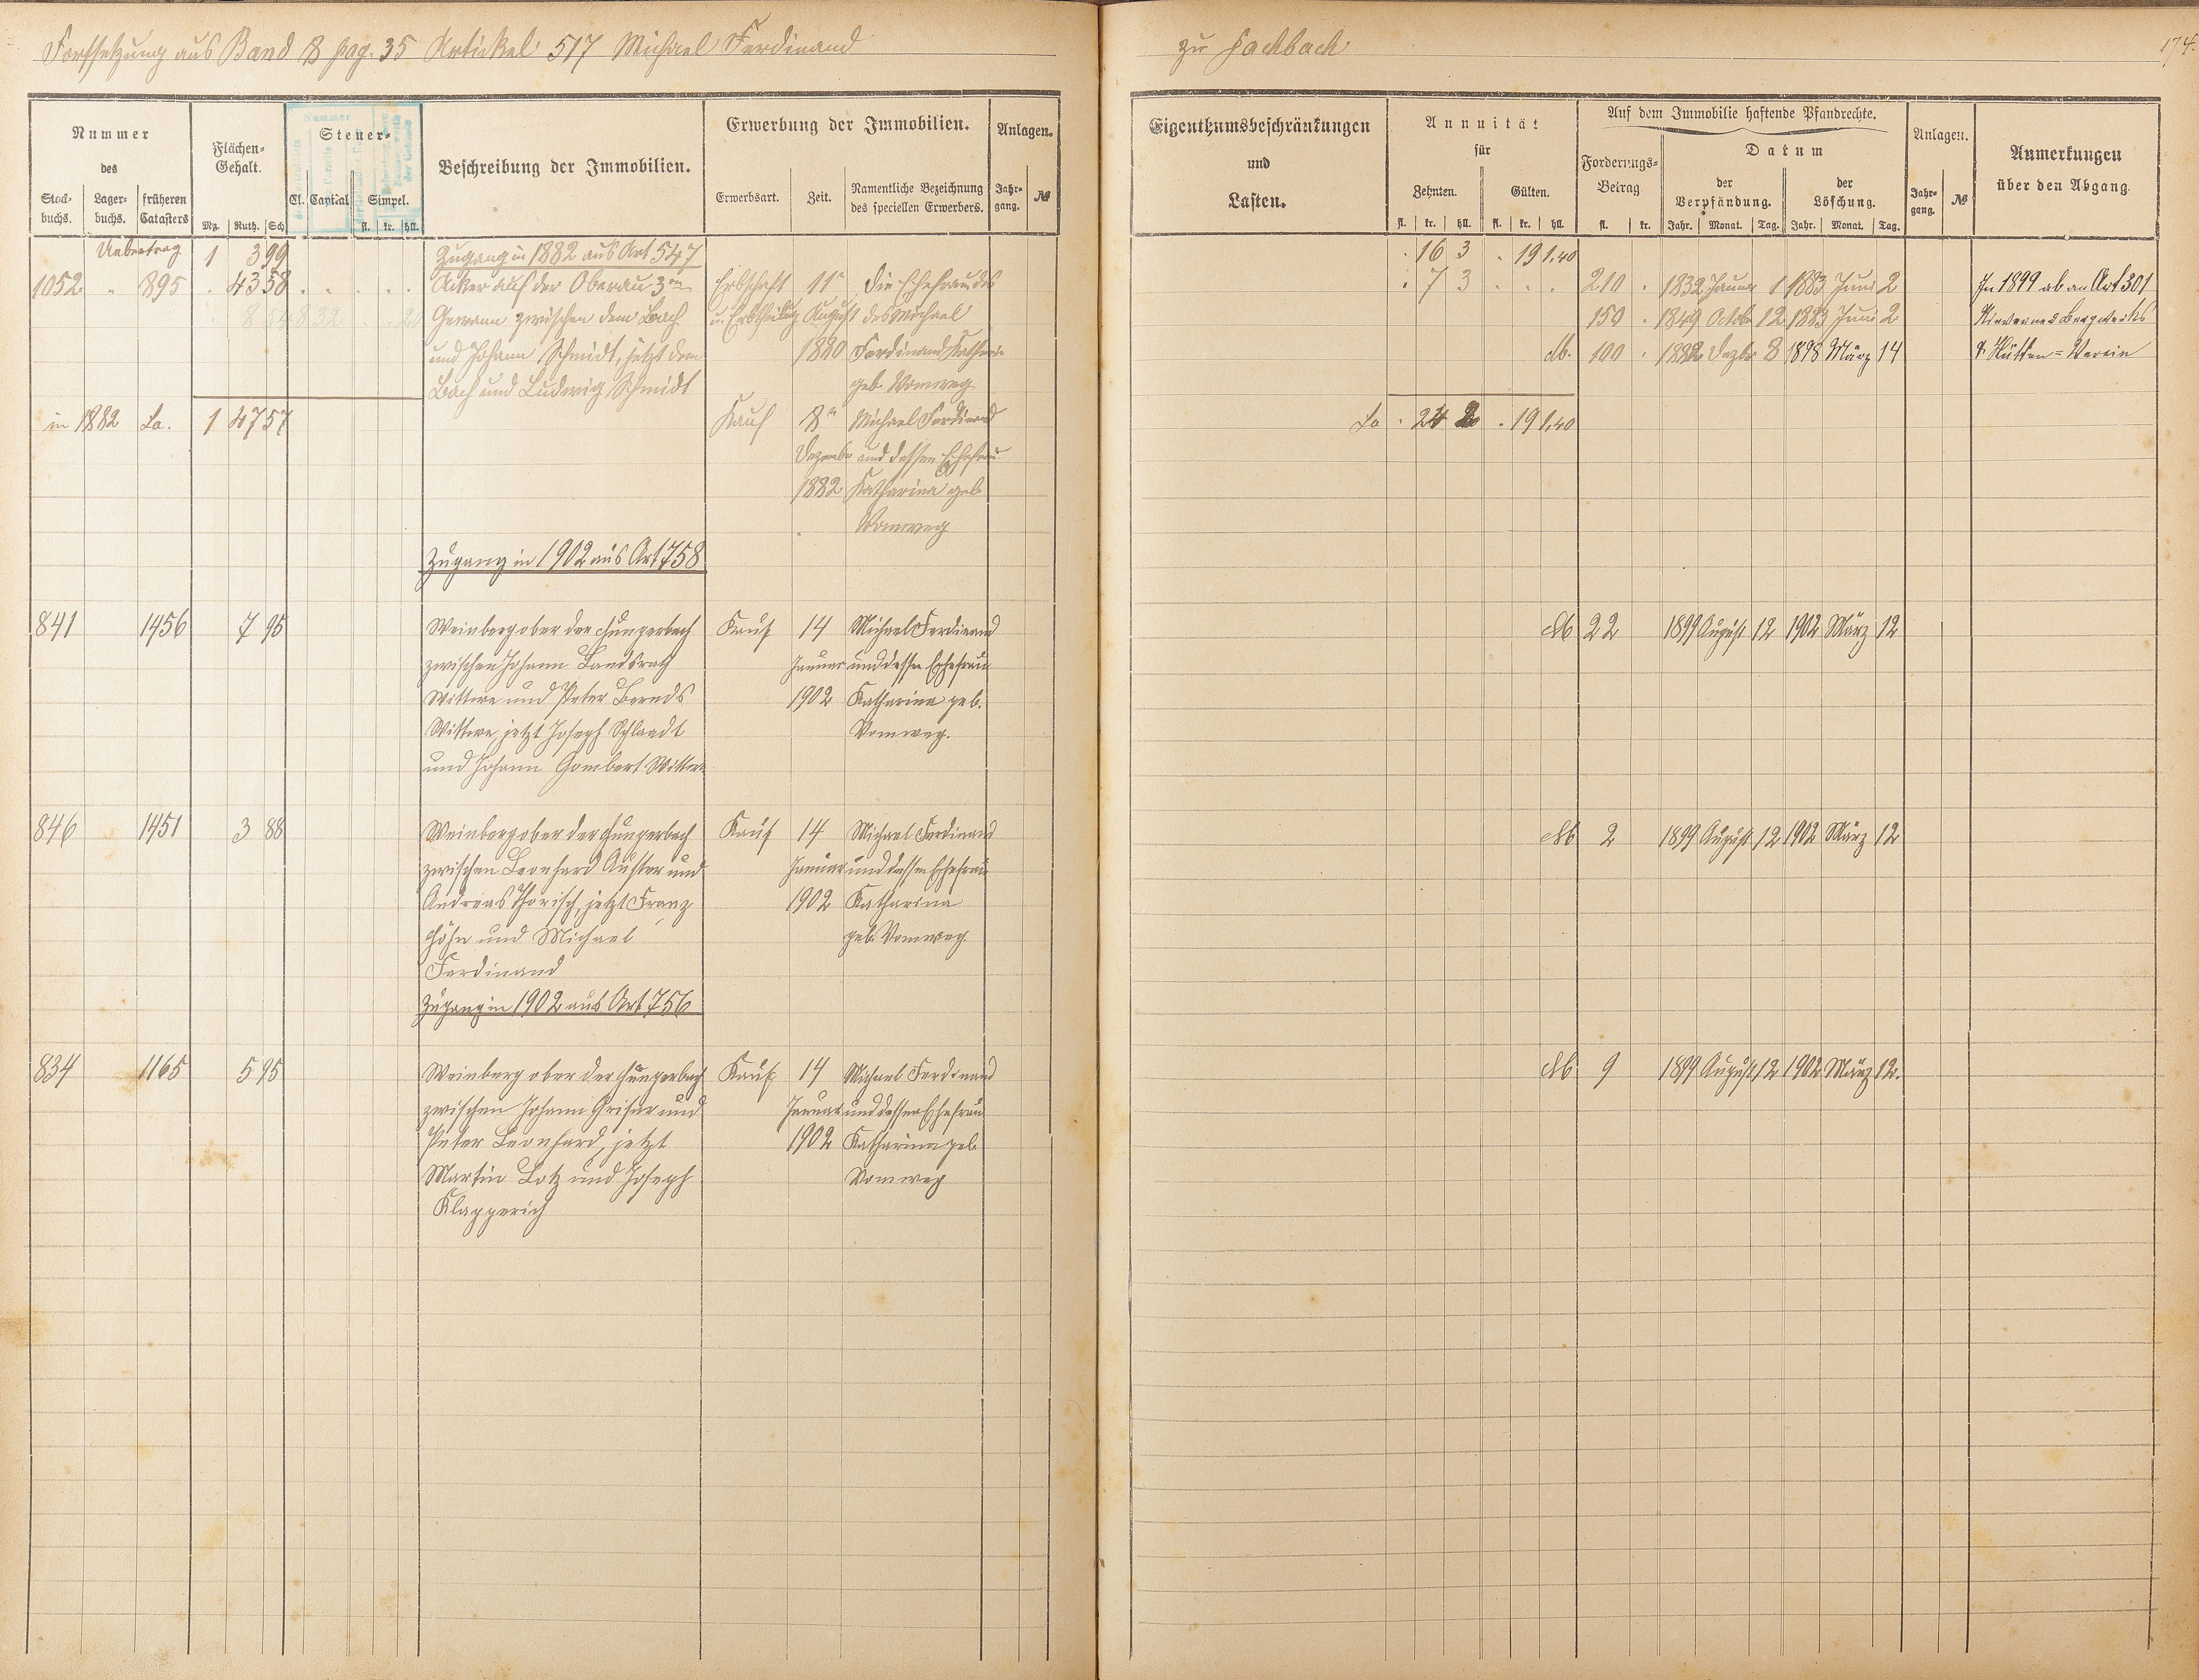 Fortsetzung aus Band 8 pag. 35 Artickel 517 Michael Ferdinand
zu Fachbach
174.
Nummer
des
Stock-
buchs.
Lager-
buchs.
früheren
Catasters
Flächen-
Gehalt.
Mg. Ruth. Sch
Steuer-
Cl. Capital Simpel.
fl. kr. hll.
Beschreibung der Immobilien.
Erwerbung der Immobilien.
Erwerbsart. Zeit.
Namentliche Bezeichnung
des speciellen Erwerbers.
Anlagen.
Jahr-
gang.
№
Eigenthumsbeschränkungen
und
Lasten.
Annuität
für
Zehnten. Gülten.
fl. kr. hll. fl. kr. hll.
Auf dem Immobilie haftende Pfandrechte.
Forderungs-
Betrag
fl. kr.
Datum
der
Verpfändung.
Jahr. Monat. Tag.
der
Löschung.
Jahr. Monat. Tag.
Anlagen.
Jahr-
gang.
№
Anmerkungen
über den Abgang.
Uebertrag 1 3 99
Zugang in 1882 aus Art 547
. 16 3 . 19 1.40
1052 " 895 . 43 58
Acker auf der Oberau 3te
Gewann zwischen dem Bach
und Johann Schmidt, jetzt dem
Bach und Ludwig Schmidt
8 54 8 32 . . 20
Erbschaft
u. Erbtheilung
11n
August
1880
die Ehefrau des
des Michael
Ferdinand Katharina
geb. Vomweg
. 7 3 . . .
210 . 1832 Januar 1 1883 Juni 2
150 . 1849 Octob 12 1883 Juni 2
Ab. 100 . 1882 Dezbr 8 1898 März 14
In 1899 ab an Art 301
Nieverner Bergwerks
& Hütten-Verein
in 1882 La. 1 47 57
Kauf
8n
Dezember
1882
Michael Ferdinand
und dessen Ehefrau
Katharina geb
Vomweg
La . 24 2 . 19 1.40
Zugang in 1902 aus Art 758
841 1456 7 95
Weinberg ober der Hungerbach
zwischen Johann Landsrath
Wittwe und Peter Bernds
Wittwe jetzt Joseph Schlaadt
und Johann Gombert Wittwe
Kauf
14
Januar
1902
Michael Ferdinand
und dessen Ehefrau
Katharina geb.
Vomweg.
Ab 22 1899 August 12 1902 März 12
846 1451 3 88
Weinberg ober der Hungerbach
zwischen Leonhard Auster und
Andreas Thorisch, jetzt Franz
Höhn und Michael
Ferdinand
Kauf
14
Januar
1902
Michael Ferdinand
und dessen Ehefrau
Katharina
geb. Vomweg.
Ab 2 1899 August 12 1902 März 12
Zugang in 1902 aus Art 756
834 1165 5 95
Weinberg ober der Hungerbach
zwischen Johann Griser und
Peter Leonhard, jetzt
Martin Lotz und Joseph
Klapperich
Kauf
14
Januar
1902
Michael Ferdinand
und dessen Ehefrau
Katharina geb
Vomweg
Ab 9 1899 August 12 1902 März 12.